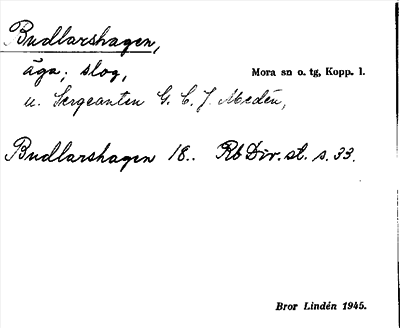 Budlarshagen,
äga; slog, Mora sn o. tg, Kopp. l.
u. Sergeanten G. C. J. Medén,
Budlarshagen 18.. Rb Div. st. s. 33.
Bror Lindén 1945.